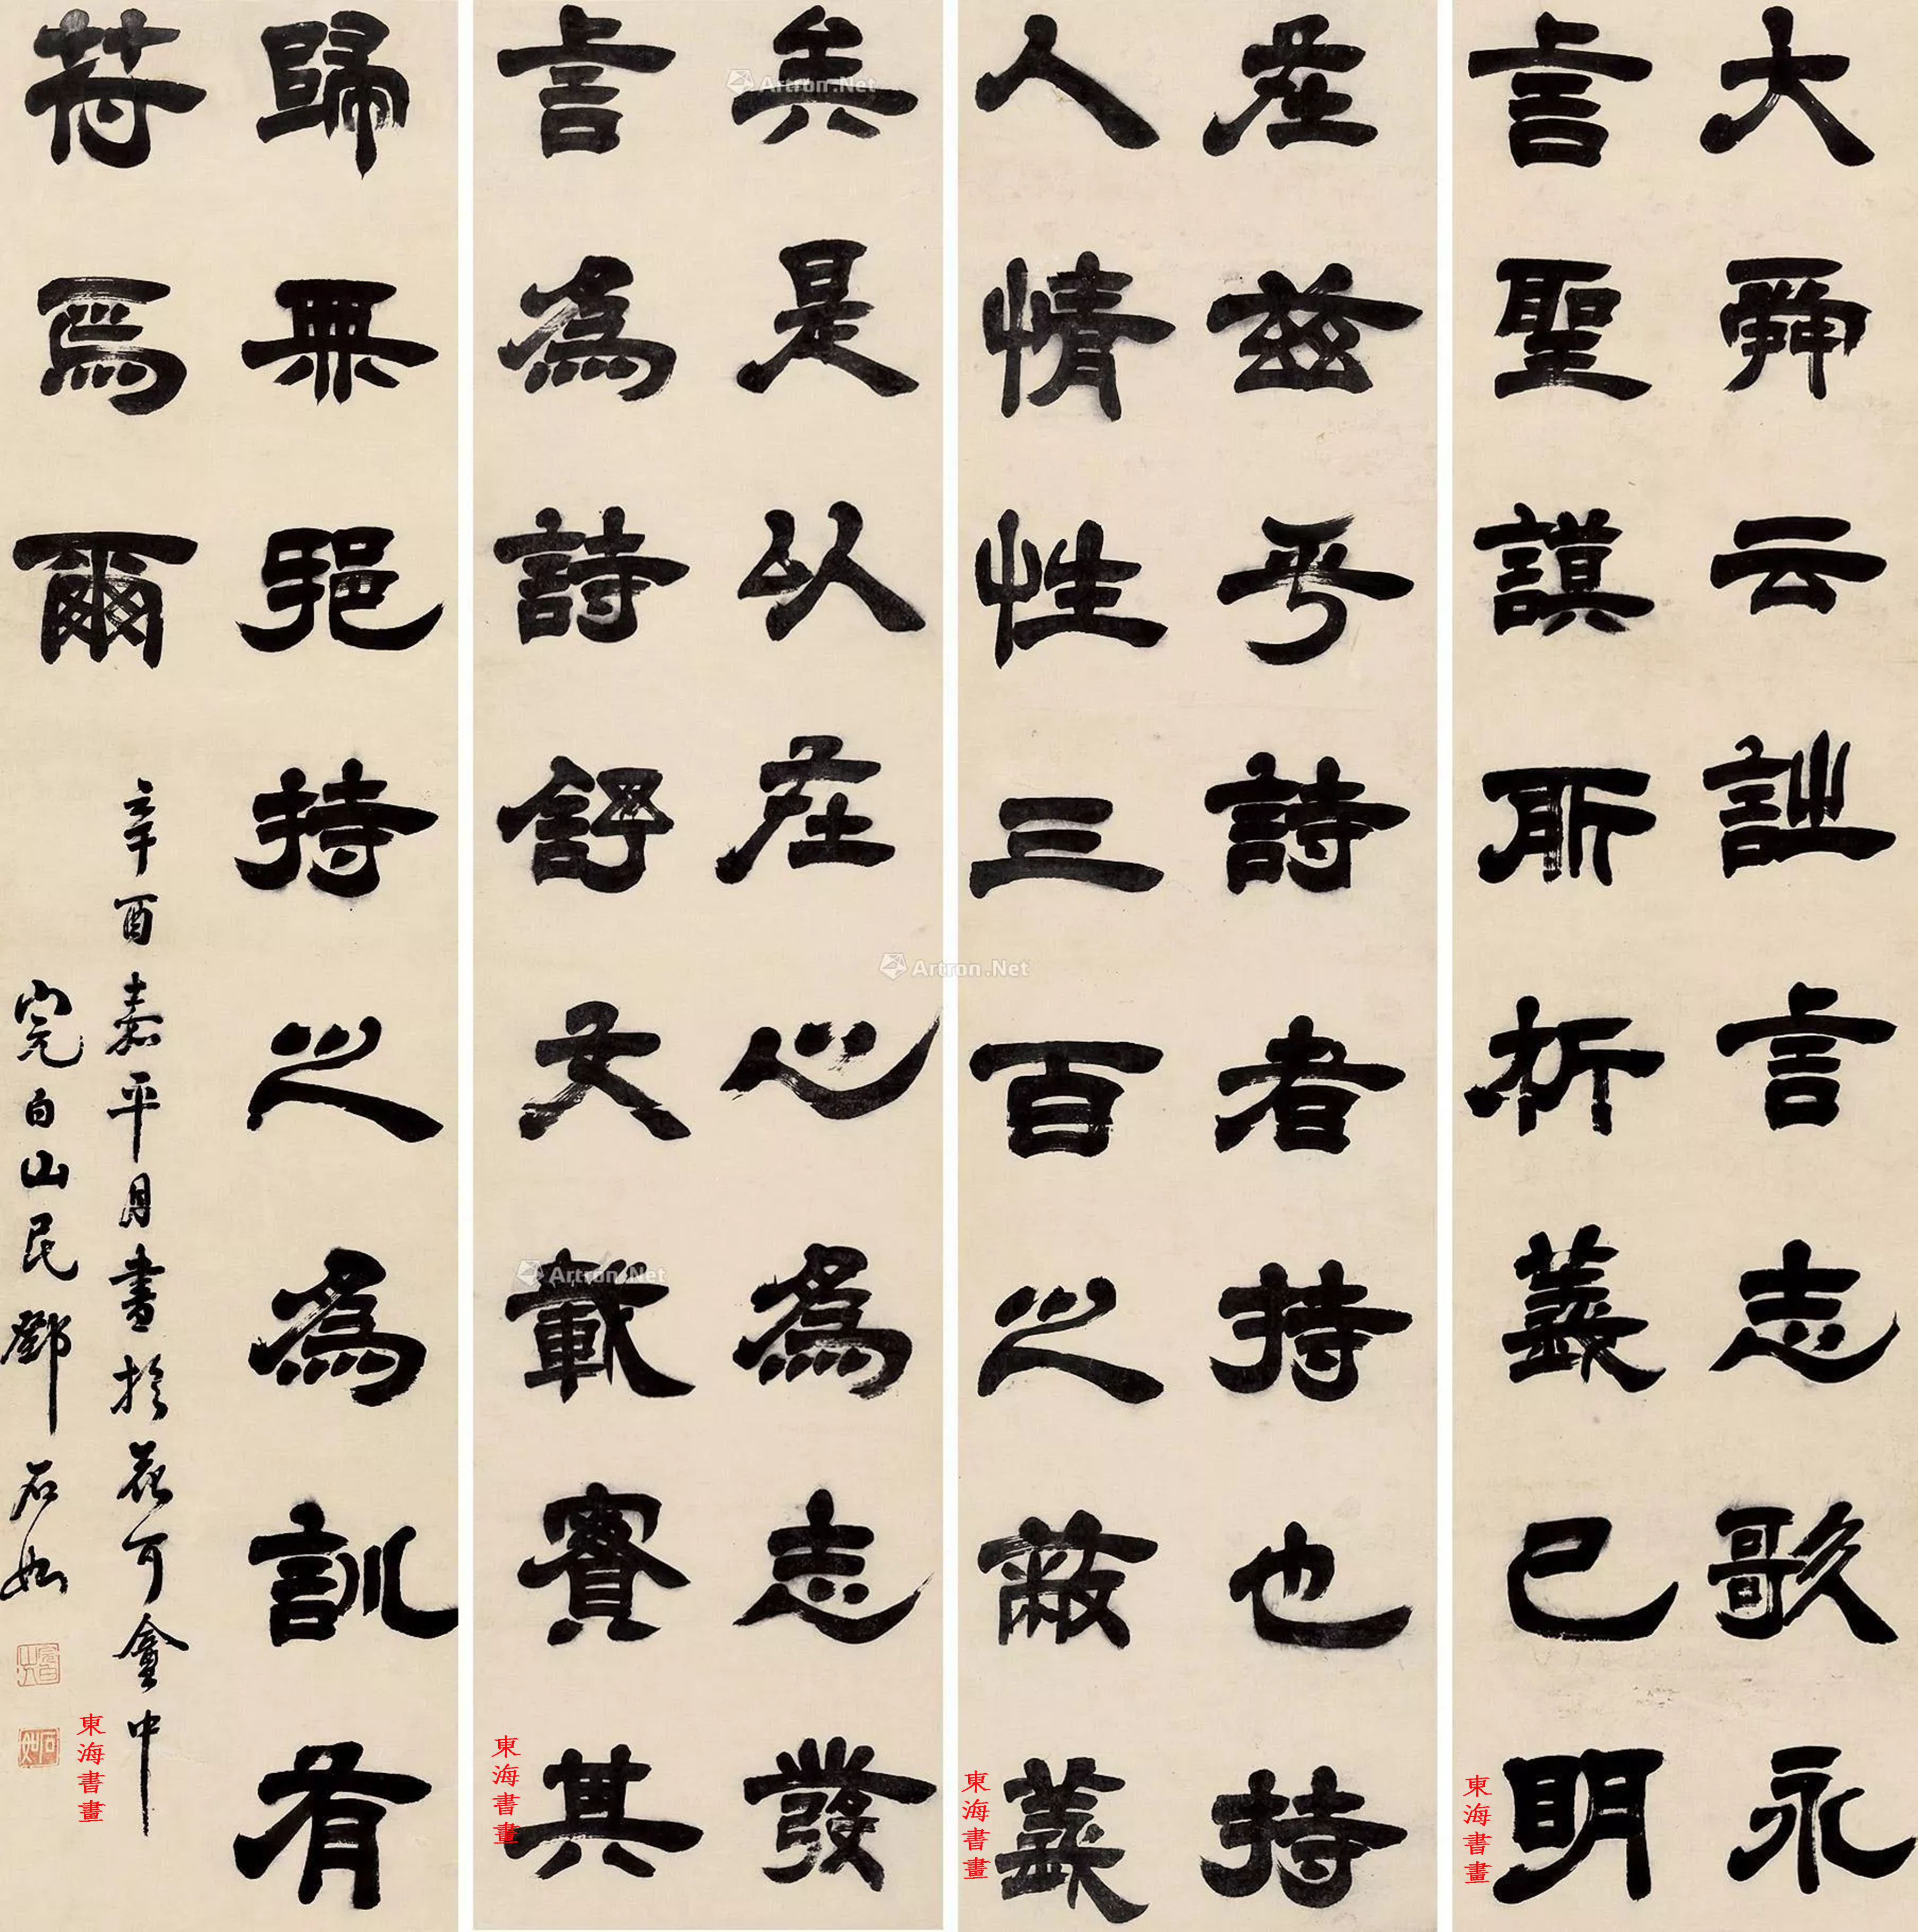 大舜云詩言志歌永
言聖謨所析義已明
在兹乎詩者持也持
人情性三百之蔽義
矣是以在心為志發
言為詩舒文載實其
歸無邪持之為訓有
符焉爾
辛酉嘉平月書於可盦中
完白山民鄧石如
石如
東海書畫
東海書畫
東海書畫
東海書畫
Artron.Net
Artron.Net
Artron.Net